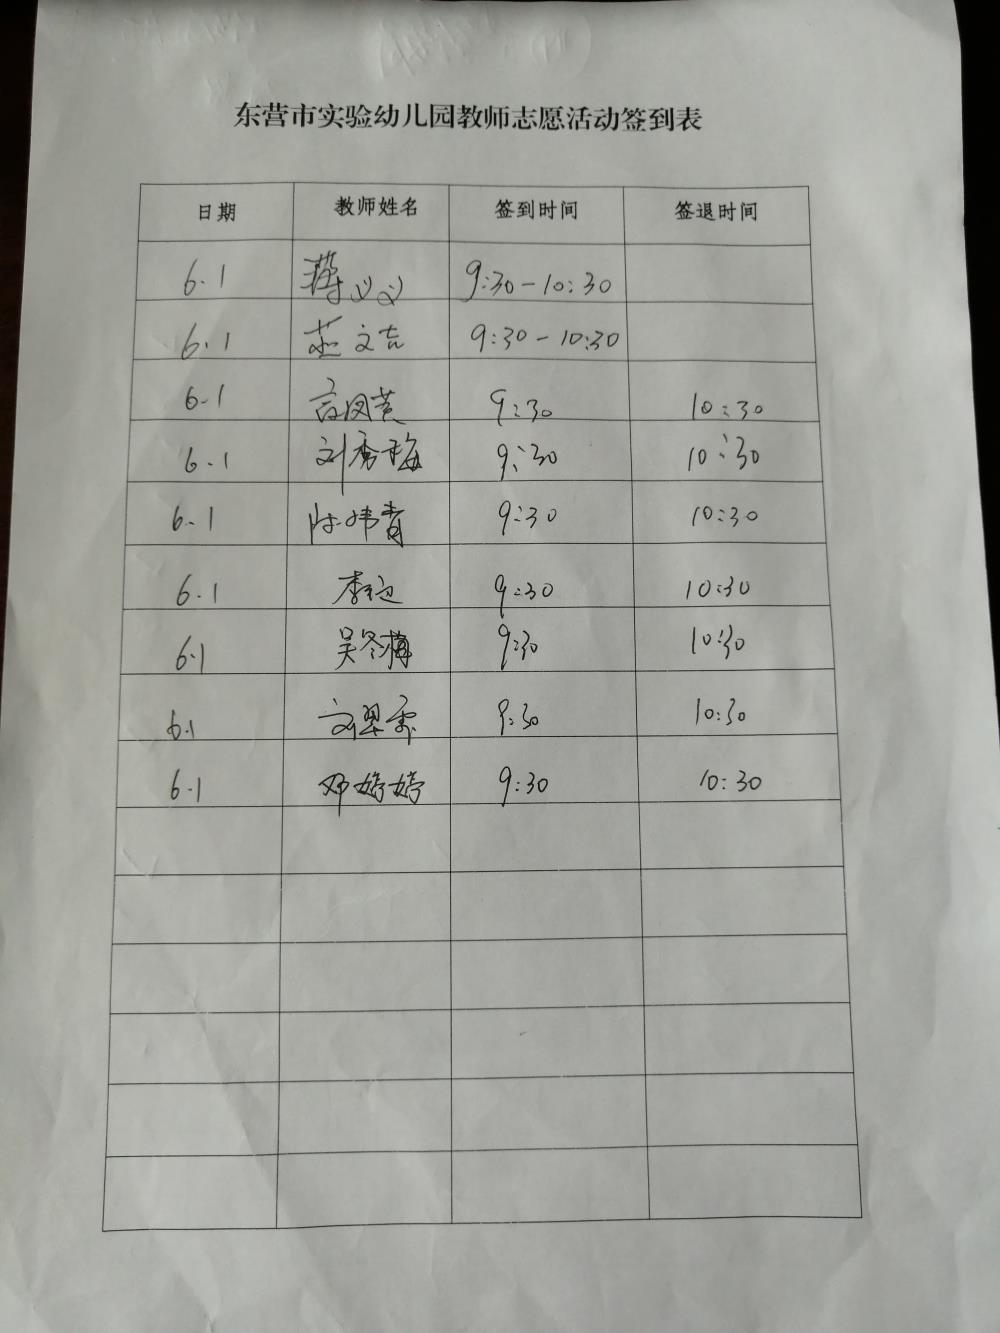 东营市实验幼儿园教师志愿活动签到表
日期 教师姓名 签到时间 签退时间
6.1 薄义义 9:30-10:30
6.1 燕文吉 9:30-10:30
6.1 高凤英 9:30 10:30
6.1 刘秀梅 9:30 10:30
6.1 陈炜青 9:30 10:30
6.1 李 9:30 10:30
6.1 吴冬梅 9:30 10:30
6.1 刘翠霞 9:30 10:30
6.1 邓婷婷 9:30 10:30